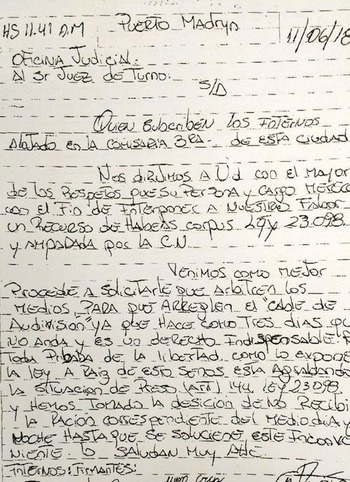 HS 11.41 A.M Puerto Madryn 11/06/18
Oficina Judicial:
Al Sr Juez de Turno:
S/D
Quien subscriben los internos
alojado en la comisaria 3ra. de esta ciudad
Nos dirijimos a Ud con el mayor
de los respetos que su persona y cargo merece
con el fin de interponer a nuestro favor
un Recurso de Habeas corpus Ley 23.098
y amparada por la C.N.
Venimos como mejor
procede a solicitarle que arbitren los
medios para que arreglen el "cable de
audivision" ya que hace como tres dias qu
no anda y es un derecho indispensable p
toda privada de la libertad. como lo expone
la ley. a raiz de esto se nos esta agravando
la situacion de preso (Art) 144 Ley 23.098
y hemos tomado la desicion de no recibi
la racion correspondiente del mediodia y
noche hasta que se solucione este inconve
niente. lo saludan muy Atte.
internos: firmantes: